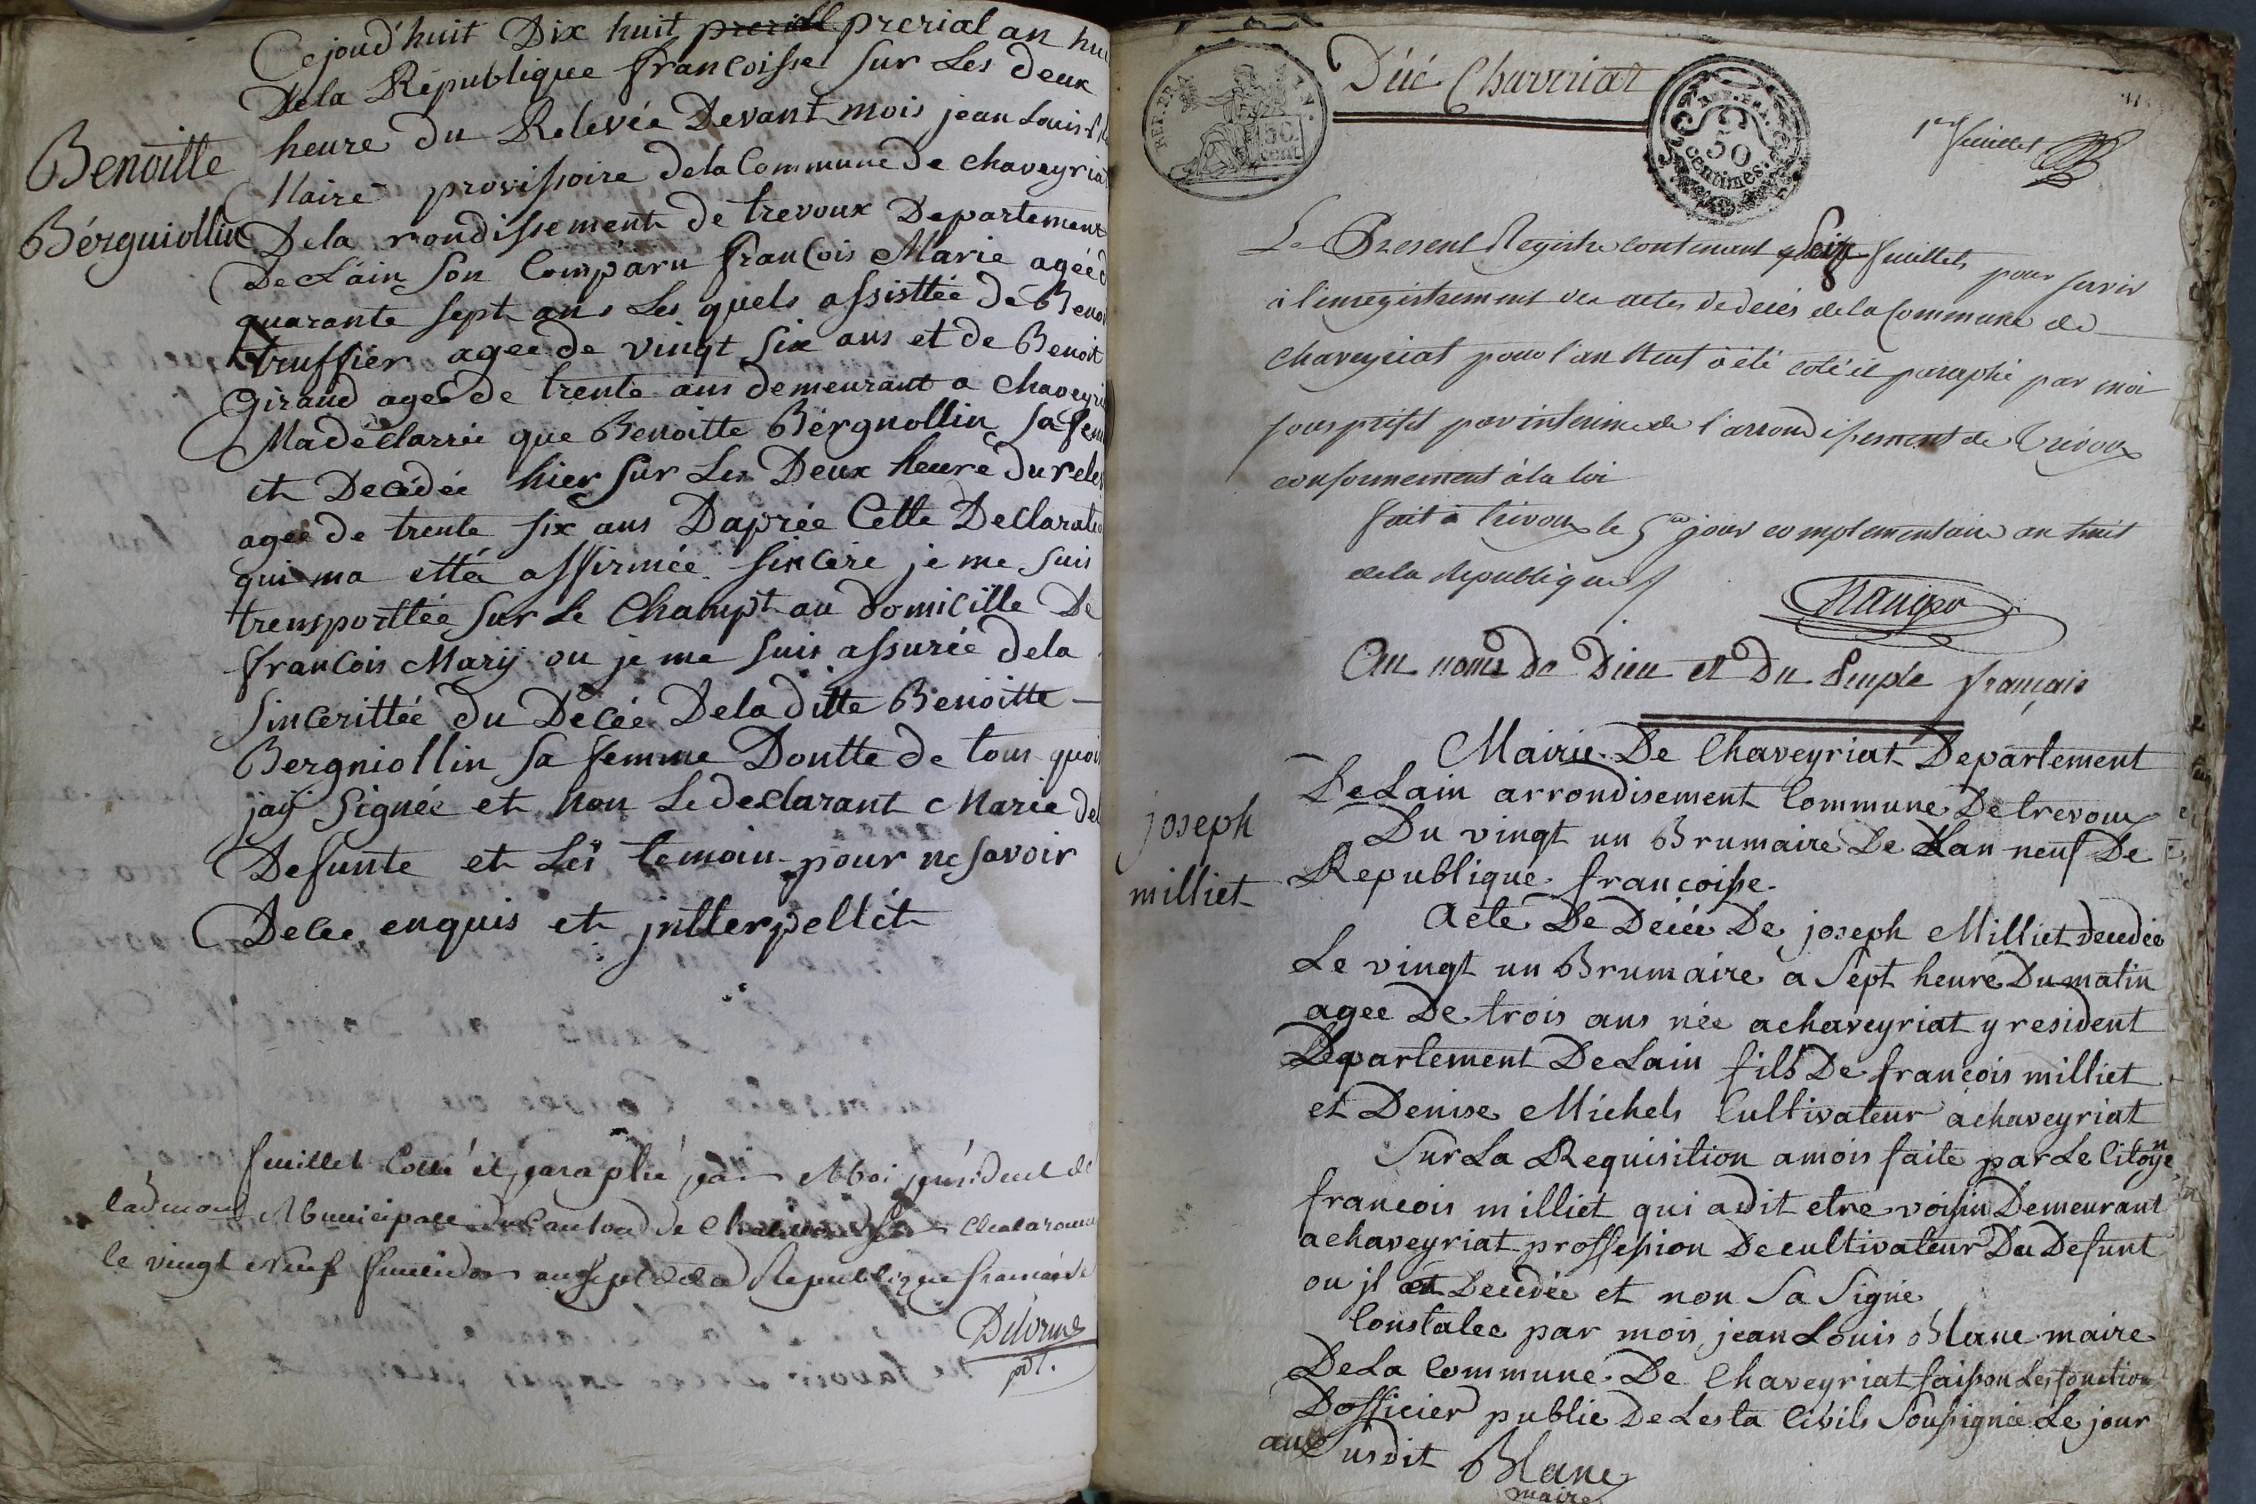 Benoitte
Bérguiollin
Cejoud'huit Dix huit prerial prerial an hui
Dela République françoisse sur Les deux
heure du Relevée Devant mois jean Louis
Maire provissoire dela Commune De chaveyria
Dela rondissement de trevoux Departement
De L'ain son Comparu françois Marie agée d
quarante sept ans Les quels assisttée de Beno
truffier agee de vingt six ans et de Benoit
Giraud ageé de trente ans demeurant a chaveyri
Ma déClarrée que Benoitte Bérgnollin sa fem
et Decédée hier sur Les Deux heure du rele
ageé de trente six ans Daprée Cette Declarati
qui ma ettée affirmée sincére je me suis
trensporttée sur Le Champt au domicille De
francois Marÿ ou je me suis assurée dela
sincerittée du Décée Dela ditte Benoitte
Bergniollin sa femme Doutte de tous quoi
jaÿ signée et non Le declarant Marie de
Defunte et Les temoin pour ne savoir
Delee enquis et jntterpellét
feuillet Cotté et paraphé par Moi président de
ladmon Municipale du Canton de Chalaronne
le vingt neuf fructidor an sept de la Republique francaise
Delorme
pdt.
REP. FRA.
50
cent
Décé Chaveriat
REP. FRA.
50
centimes.
1er feuillet
Le Present Registre contenant seize feuillets pour servir
à l'enregistrement des actes de décés de la Commune de
Chaveyriat pour l'an Neuf à été coté et paraphé par moi
sous préfet par interime de l'arrondissement de Trévoux
conformement à la loi
fait à Trévoux le 5me jour complementaire an huit
de la Republique
Au noms de Dieu et Du Peuple français
joseph
milliet
Mairie De Chaveyriat Departement
De Lain arrondisement Commune De trevoux
Du vingt un Brumaire De Lan neuf De
Republique françoisse.
Acte De Décée De joseph Milliet decedée
Le vingt un Brumaire a sept heure Du matin
agee De trois ans née a chaveyriat y resident
Departement De Lain fils De françois milliet
et Denise Michels Cultivateur à chaveyriat
Sur La Requisition a mois faite par Le Citoyn
francois milliet qui a dit etre voisin Demeurant
a chaveyriat proffession De cultivateur Du Defunt
ou jl est Decedée et non sa signé
Constalee par mois jean Louis Blanc maire
De La Commune De Chaveyriat faisson Les fonction
Dofficier public De Lesta Civils soussignée Le jour
anc usdit Blanc
maire